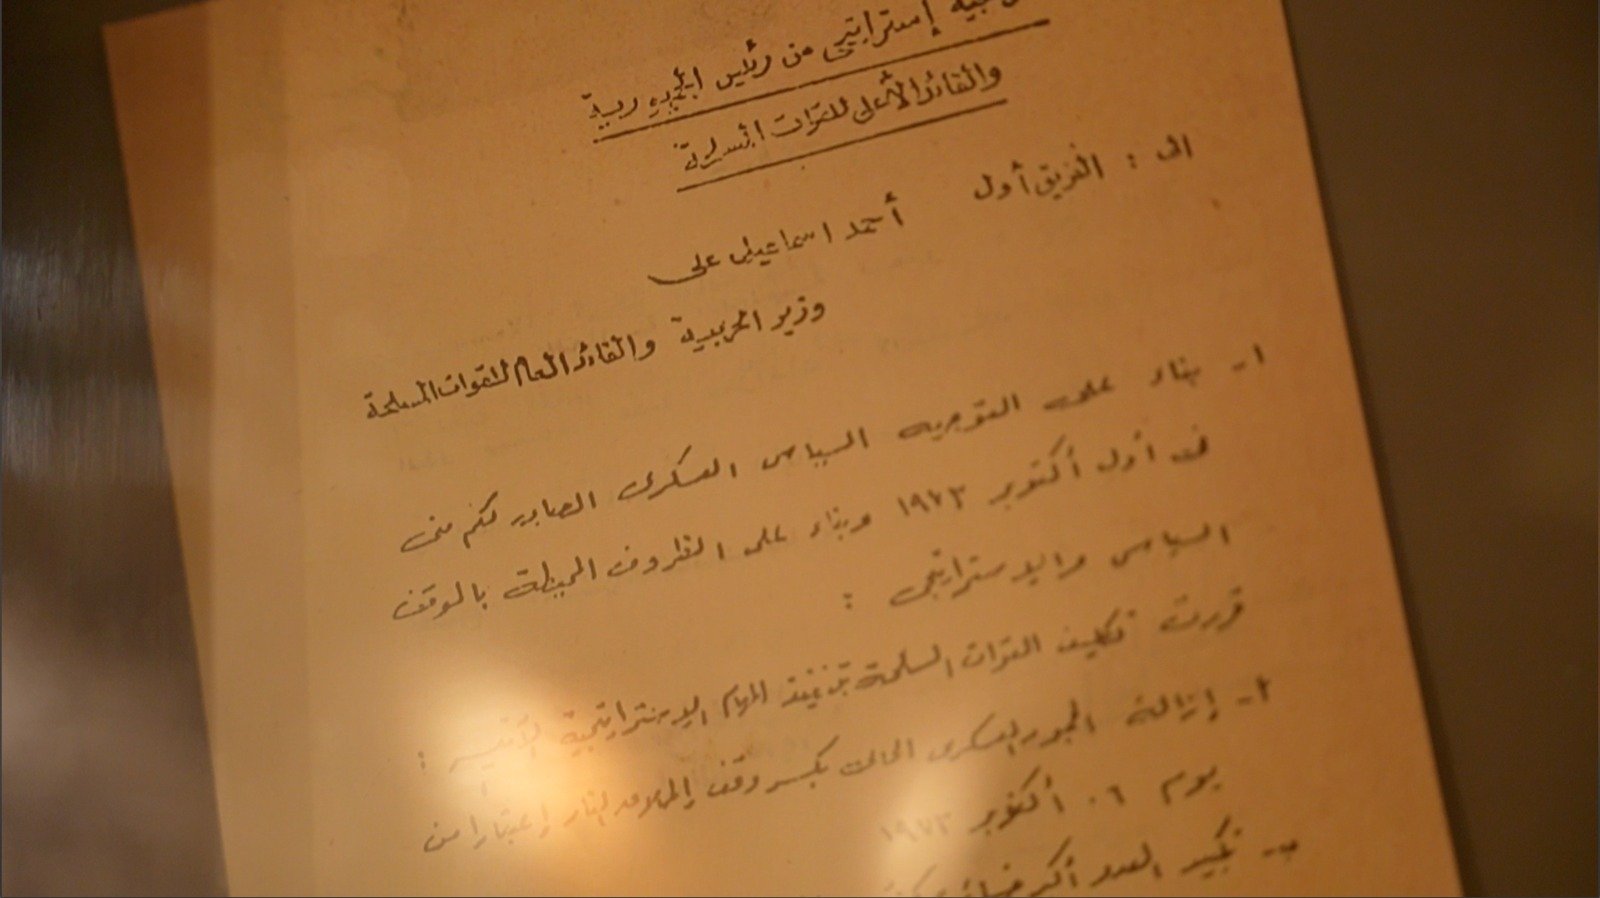 إستراتيجي من رئيس الجمهورية
والقائد الأعلى للقوات المسلحة
الى : الفريق أول
أحمد اسماعيل على
وزير الحربية والقائد العام للقوات المسلحة
١- بناء على التوجيه السياسى العسكرى الصادر لكم منى
فى أول أكتوبر ١٩٧٣ وبناء على الظروف المحيطة بالموقف
السياسى والاستراتيجى :
قررت تكليف القوات المسلحة بتنفيذ المهام الاستراتيجية الآتية :
أ- إزالة الجمود العسكرى الحالى بكسر وقف إطلاق النار إعتبارا من
يوم ٠٦ أكتوبر ١٩٧٣
ب- تكبيد العدو أكبر خسائر